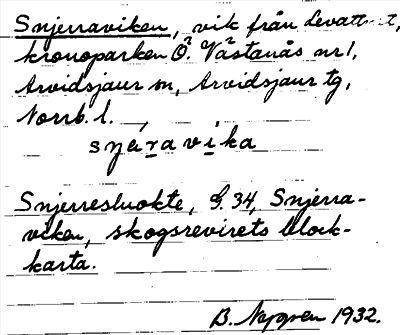 Snjerraviken, vik från
kronoparken Ö. Västanås nr 1,
Arvidsjaur sn, Arvidsjaur tg,
Norrb. l.
snjeravika
Snjerresluokte, G. 34, Snjerra-
viken, skogsrevirets block-
karta.
B. Nygren 1932.